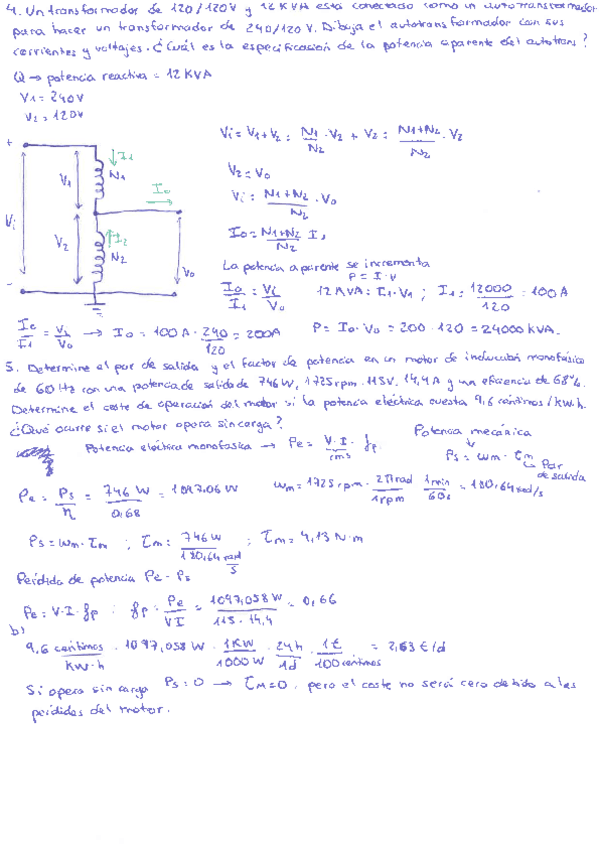 4. Un transformador de 120/120V y 12 KVA está conectado como un autotransformador
para hacer un transformador de 240/120 V. Dibuja el autotransformador con sus
corrientes y voltajes. ¿Cuál es la especificación de la potencia aparente del autotrans?
Q → potencia reactiva = 12 KVA
V1 = 240V
V2 = 120V
Vi = V1+V2 = N1/N2 · V2 + V2 = N1+N2/N2 · V2
V2 = V0
Vi = N1+N2/N2 · V0
I0 = N1+N2/N2 I1
+ V1 I1 N1 I0
Vi V2 I2 N2 V0
-
La potencia aparente se incrementa
P = I·V
I0/I1 = Vi/V0 12 KVA = I1·V1 ; I1 = 12000/120 = 100 A
I0/I1 = Vi/V0 → I0 = 100 A · 240/120 = 200A P = I0·V0 = 200·120 = 24000 KVA.
5. Determine el par de salida y el factor de potencia en un motor de inducción monofásico
de 60 Hz con una potencia de salida de 746 W, 1725 rpm. 115V, 14,4 A y un eficiencia de 68%.
Determine el coste de operación del motor si la potencia eléctrica cuesta 9,6 céntimos/kW.h.
¿Qué ocurre si el motor opera sin carga?
Potencia eléctrica monofasica → Pe = V·I/rms · fp
Potencia mecánica
Ps = ωm · τm
Par de salida
Pe = Ps/η = 746 W/0,68 = 1097.06 W
ωm = 1725 rpm · 2πrad/1rpm · 1min/60s = 180,64 rad/s
Ps = ωm · τm ; τm = 746 W/180,64 rad/s ; τm = 4,13 N·m
Pérdida de potencia Pe - Ps
Pe = V·I·fp ; fp = Pe/VI = 1097,058 W/115·14,4 = 0,66
b)
9,6 céntimos/KW·h · 1097,058 W · 1KW/1000 W · 24h/1d · 1€/100 céntimos = 2,53 €/d
Si opera sin carga Ps = 0 → τM = 0, pero el coste no será cero debido a las
perdidas del motor.